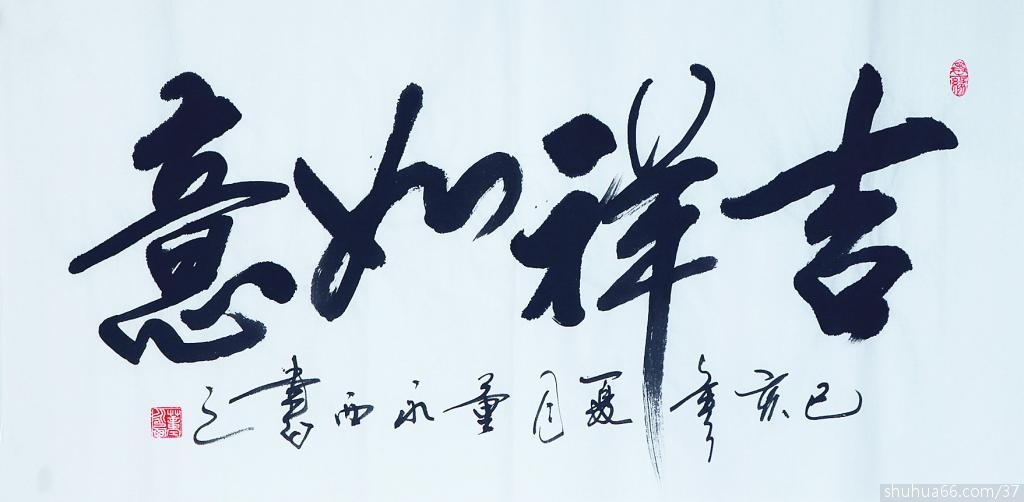 吉祥如意
己亥年夏月董永西書之
shuhua66.com/37